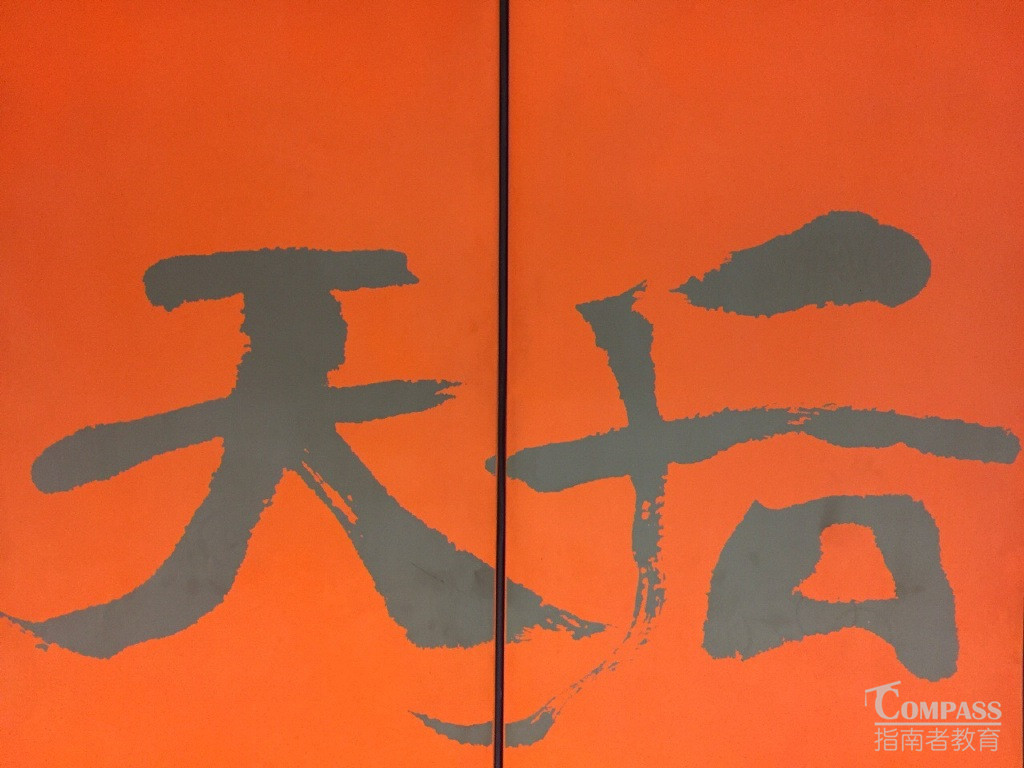 天后
COMPASS
指南者教育